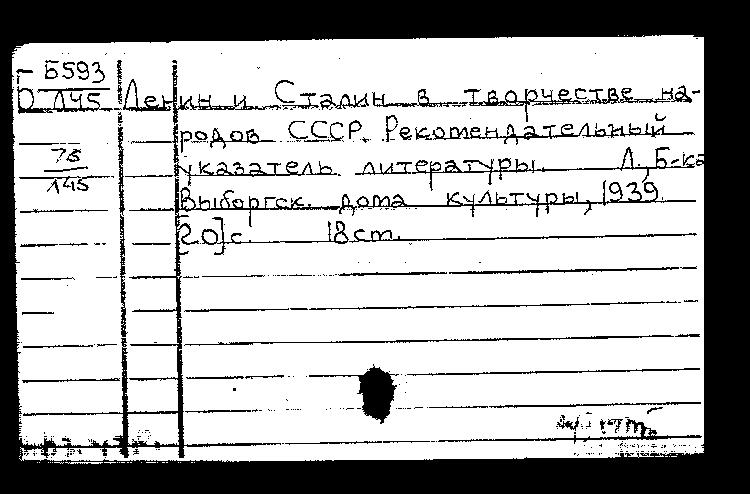 Б593
Л45
Ленин и Сталин в творчестве на-
родов СССР. Рекомендательный
75
145
указатель литературы. Л., Б-ка
Выборгск. дома культуры, 1939.
[20] с. 18 cm.